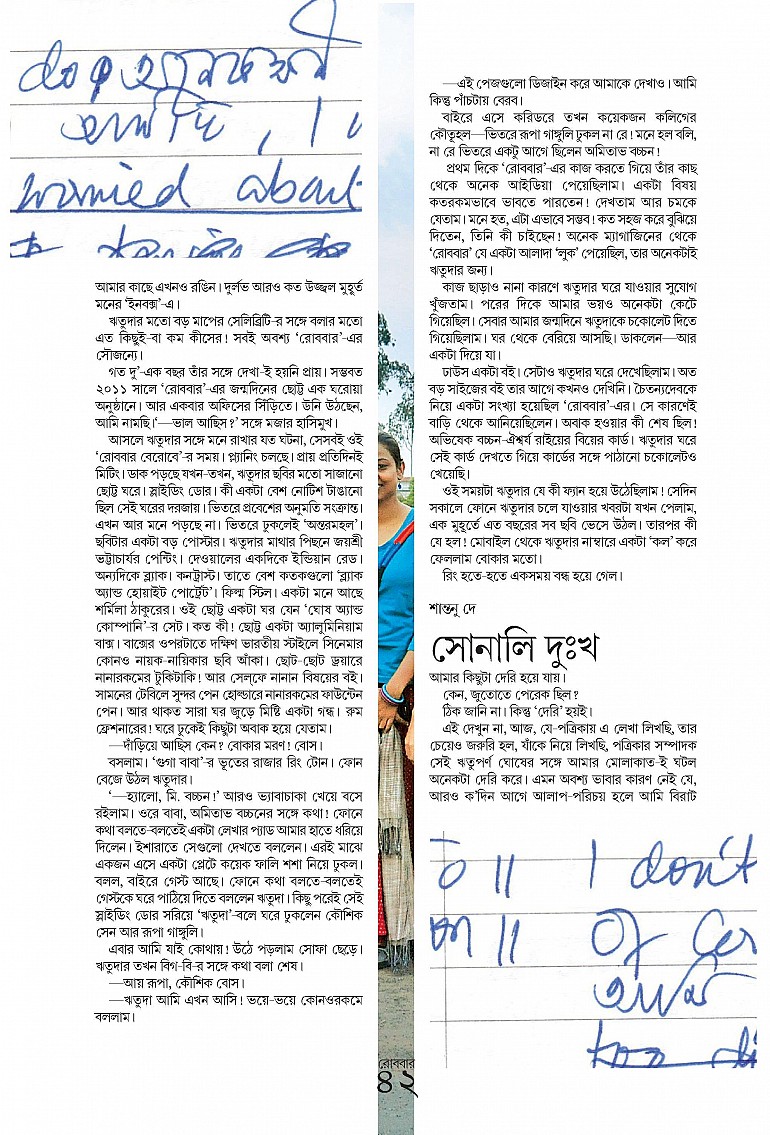 worried about
আমার কাছে এখনও রঙিন। দুর্লভ আরও কত উজ্জ্বল মুহূর্ত
মনের ‘ইনবক্স’-এ।
ঋতুদার মতো বড় মাপের সেলিব্রিটি-র সঙ্গে বলার মতো
এত কিছুই-বা কম কীসের! সবই অবশ্য ‘রোববার’-এর
সৌজন্যে।
গত দু’-এক বছর তাঁর সঙ্গে দেখা-ই হয়নি প্রায়। সম্ভবত
২০১১ সালে ‘রোববার’-এর জন্মদিনের ছোট্ট এক ঘরোয়া
অনুষ্ঠানে। আর একবার অফিসের সিঁড়িতে। উনি উঠছেন,
আমি নামছি। ‘—ভাল আছিস?’ সঙ্গে মজার হাসিমুখ।
আসলে ঋতুদার সঙ্গে মনে রাখার যত ঘটনা, সেসবই ওই
‘রোববার বেরোবে’-র সময়। প্ল্যানিং চলছে। প্রায় প্রতিদিনই
মিটিং। ডাক পড়ছে যখন-তখন, ঋতুদার ছবির মতো সাজানো
ছোট্ট ঘরে। স্লাইডিং ডোর। কী একটা বেশ নোটিশ টাঙানো
ছিল সেই ঘরের দরজায়। ভিতরে প্রবেশের অনুমতি সংক্রান্ত।
এখন আর মনে পড়ছে না। ভিতরে ঢুকলেই ‘অন্তরমহল’।
ছবিটার একটা বড় পোস্টার। ঋতুদার মাথার পিছনে জয়শ্রী
ভট্টাচার্যর পেন্টিং। দেওয়ালের একদিকে ইন্ডিয়ান রেড।
অন্যদিকে ব্ল্যাক। কনট্রাস্ট। তাতে বেশ কতকগুলো ‘ব্ল্যাক
অ্যান্ড হোয়াইট পোর্ট্রেট’। ফিল্ম স্টিল। একটা মনে আছে
শর্মিলা ঠাকুরের। ওই ছোট্ট একটা ঘর যেন ‘ঘোষ অ্যান্ড
কোম্পানি’-র সেট। কত কী! ছোট্ট একটা অ্যালুমিনিয়াম
বাক্স। বাক্সের ওপরটাতে দক্ষিণ ভারতীয় স্টাইলে সিনেমার
কোনও নায়ক-নায়িকার ছবি আঁকা। ছোট-ছোট ড্রয়ারে
নানারকমের টুকিটাকি! আর সেল্‌ফে নানান বিষয়ের বই।
সামনের টেবিলে সুন্দর পেন হোল্ডারে নানারকমের ফাউন্টেন
পেন। আর থাকত সারা ঘর জুড়ে মিষ্টি একটা গন্ধ। রুম
ফ্রেশনারের! ঘরে ঢুকেই কিছুটা অবাক হয়ে যেতাম।
—দাঁড়িয়ে আছিস কেন? বোকার মরণ! বোস।
বসলাম। ‘গুগা বাবা’-র ভূতের রাজার রিং টোন। ফোন
বেজে উঠল ঋতুদার।
‘—হ্যালো, মি. বচ্চন!’ আরও ভ্যাবাচাকা খেয়ে বসে
রইলাম। ওরে বাবা, অমিতাভ বচ্চনের সঙ্গে কথা! ফোনে
কথা বলতে-বলতেই একটা লেখার প্যাড আমার হাতে ধরিয়ে
দিলেন। ইশারাতে সেগুলো দেখতে বললেন। এরই মাঝে
একজন এসে একটা প্লেটে কয়েক ফালি শশা নিয়ে ঢুকল।
বলল, বাইরে গেস্ট আছে। ফোনে কথা বলতে-বলতেই
গেস্টকে ঘরে পাঠিয়ে দিতে বললেন ঋতুদা। কিছু পরেই সেই
স্লাইডিং ডোর সরিয়ে ‘ঋতুদা’-বলে ঘরে ঢুকলেন কৌশিক
সেন আর রূপা গাঙ্গুলি।
এবার আমি যাই কোথায়! উঠে পড়লাম সোফা ছেড়ে।
ঋতুদার তখন বিগ-বি-র সঙ্গে কথা বলা শেষ।
—আয় রূপা, কৌশিক বোস।
—ঋতুদা আমি এখন আসি! ভয়ে-ভয়ে কোনওরকমে
বললাম।
—এই পেজগুলো ডিজাইন করে আমাকে দেখাও। আমি
কিন্তু পাঁচটায় বেরব।
বাইরে এসে করিডরে তখন কয়েকজন কলিগের
কৌতূহল—ভিতরে রূপা গাঙ্গুলি ঢুকল না রে! মনে হল বলি,
না রে ভিতরে একটু আগে ছিলেন অমিতাভ বচ্চন!
প্রথম দিকে ‘রোববার’-এর কাজ করতে গিয়ে তাঁর কাছ
থেকে অনেক আইডিয়া পেয়েছিলাম। একটা বিষয়
কতরকমভাবে ভাবতে পারতেন! দেখতাম আর চমকে
যেতাম। মনে হত, এটা এভাবে সম্ভব! কত সহজ করে বুঝিয়ে
দিতেন, তিনি কী চাইছেন! অনেক ম্যাগাজিনের থেকে
‘রোববার’ যে একটা আলাদা ‘লুক’ পেয়েছিল, তার অনেকটাই
ঋতুদার জন্য।
কাজ ছাড়াও নানা কারণে ঋতুদার ঘরে যাওয়ার সুযোগ
খুঁজতাম। পরের দিকে আমার ভয়ও অনেকটা কেটে
গিয়েছিল। সেবার আমার জন্মদিনে ঋতুদাকে চকোলেট দিতে
গিয়েছিলাম। ঘর থেকে বেরিয়ে আসছি। ডাকলেন—আর
একটা দিয়ে যা।
ঢাউস একটা বই। সেটাও ঋতুদার ঘরে দেখেছিলাম। অত
বড় সাইজের বই তার আগে কখনও দেখিনি। চৈতন্যদেবকে
নিয়ে একটা সংখ্যা হয়েছিল ‘রোববার’-এর। সে কারণেই
বাড়ি থেকে আনিয়েছিলেন। অবাক হওয়ার কী শেষ ছিল!
অভিষেক বচ্চন-ঐশ্বর্য রাইয়ের বিয়ের কার্ড। ঋতুদার ঘরে
সেই কার্ড দেখতে গিয়ে কার্ডের সঙ্গে পাঠানো চকোলেটও
খেয়েছি।
ওই সময়টা ঋতুদার যে কী ফ্যান হয়ে উঠেছিলাম! সেদিন
সকালে ফোনে ঋতুদার চলে যাওয়ার খবরটা যখন পেলাম,
এক মুহূর্তে এত বছরের সব ছবি ভেসে উঠল। তারপর কী
যে হল! মোবাইল থেকে ঋতুদার নাম্বারে একটা ‘কল’ করে
ফেললাম বোকার মতো।
রিং হতে-হতে একসময় বন্ধ হয়ে গেল।
শান্তনু দে
সোনালি দুঃখ
আমার কিছুটা দেরি হয়ে যায়।
কেন, জুতোতে পেরেক ছিল?
ঠিক জানি না। কিন্তু ‘দেরি’ হয়ই।
এই দেখুন না, আজ, যে-পত্রিকায় এ লেখা লিখছি, তার
চেয়েও জরুরি হল, যাঁকে নিয়ে লিখছি, পত্রিকার সম্পাদক
সেই ঋতুপর্ণ ঘোষের সঙ্গে আমার মোলাকাত-ই ঘটল
অনেকটা দেরি করে। এমন অবশ্য ভাবার কারণ নেই যে,
আরও ক’দিন আগে আলাপ-পরিচয় হলে আমি বিরাট
I don't
of
রোববার
৪২